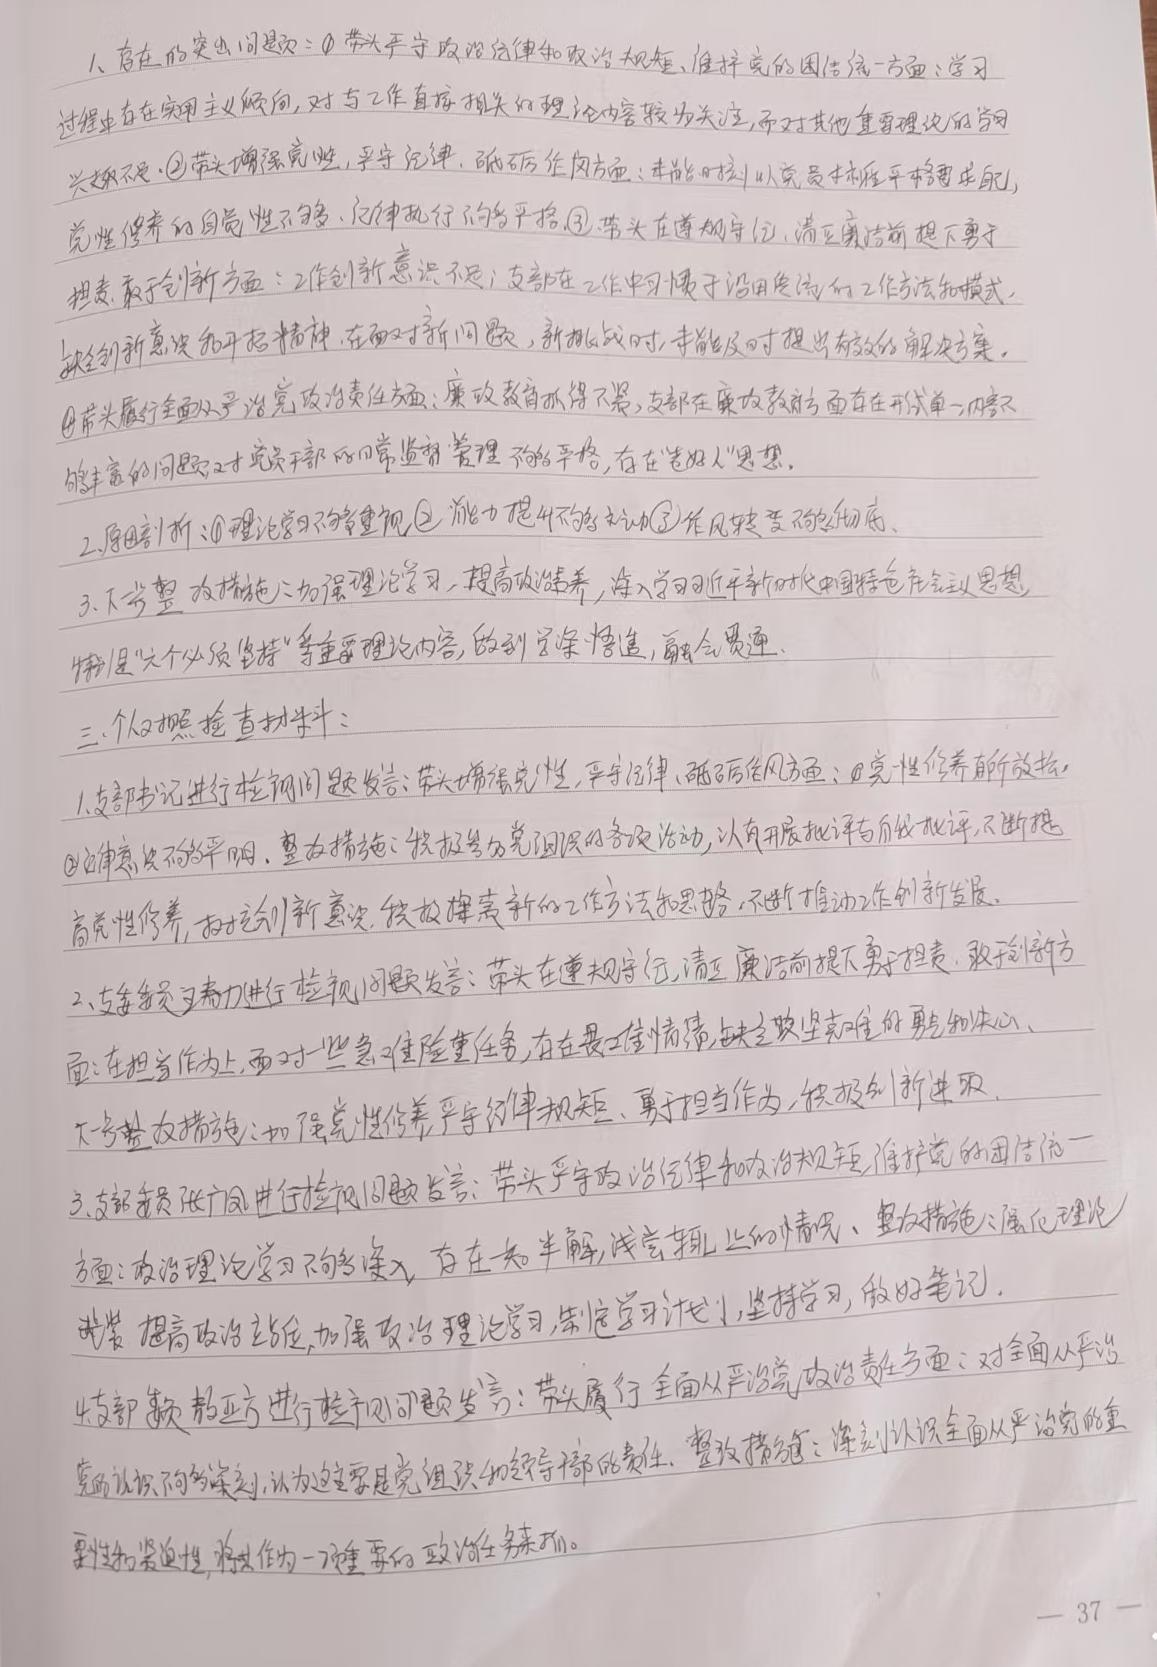 1、存在的突出问题：①带头严守政治纪律和政治规矩、维护党的团结统一方面：学习
过程中存在实用主义倾向，对与工作直接相关的理论内容较为关注，而对其他重要理论的学习
兴趣不足。②带头增强党性，严守纪律、砥砺作风方面：未能时刻以党员标准严格要求自己，
党性修养的自觉性不够、纪律执行不够严格。③带头在遵规守纪、清正廉洁前提下勇于
担责、敢于创新方面：工作创新意识不足；支部在工作中习惯于沿用传统的工作方法和模式，
缺乏创新意识和开拓精神，在面对新问题，新挑战时，未能及时提出有效的解决方案。
④带头履行全面从严治党政治责任方面：廉政教育抓得不紧，支部在廉政教育方面存在形式单一、内容不
够丰富的问题，对党员干部的日常监督管理不够严格，存在"老好人"思想。
2、原因剖析：①理论学习不够重视，②能力提升不够主动③作风转变不够彻底、
3、下一步整改措施：加强理论学习，提高政治素养，深入学习习近平新时代中国特色社会主义思想，
特别是"六个必须坚持"等重要理论内容，做到学深悟透，融会贯通、
三、个人对照检查材料：
1、支部书记进行检视问题发言：带头增强党性，严守纪律、砥砺作风方面：①党性修养有所放松，
②纪律意识不够严明、整改措施：积极参加党组织的各项活动，认真开展批评与自我批评，不断提
高党性修养，树立创新意识，积极探索新的工作方法和思路，不断推动工作创新发展。
2、支部委员王春力进行检视问题发言：带头在遵规守纪，清正廉洁前提下勇于担责、敢于创新方
面：在担当作为上，面对一些急难险重任务，存在畏难情绪，缺乏攻坚克难的勇气和决心、
下一步整改措施：加强党性修养，严守纪律规矩、勇于担当作为，积极创新进取、
3、支部委员张广凤进行检视问题发言：带头严守政治纪律和政治规矩，维护党的团结统一
方面：政治理论学习不够深入，存在一知半解，浅尝辄止的情况、整改措施：强化理论
武装，提高政治站位，加强政治理论学习，制定学习计划，坚持学习，做好笔记．
4、支部委员 亚方进行检视问题发言：带头履行全面从严治党政治责任方面：对全面从严治
党的认识不够深刻，认为这主要是党组织和领导干部的责任、整改措施：深刻认识全面从严治党的重
要性和紧迫性，将其作为一项重要的政治任务来抓。
— 37 —